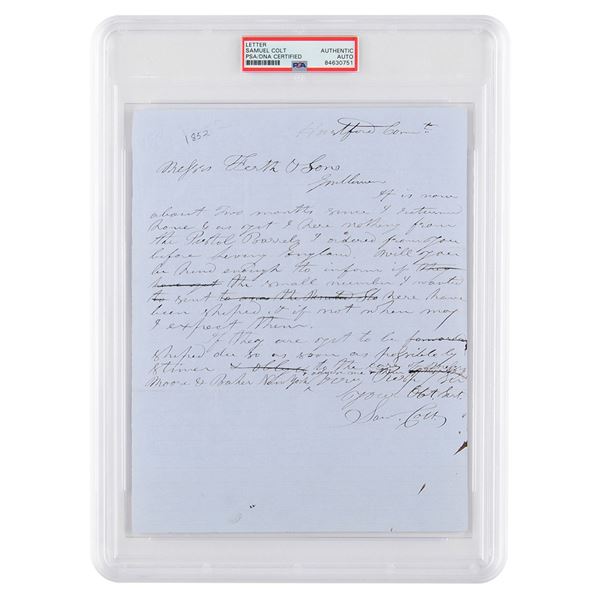 LETTER
SAMUEL COLT
PSA/DNA CERTIFIED
AUTHENTIC
AUTO
84630751
PSA
1852
Hartford Connt.
Messrs Firth & Sons
Gentlemen
It is now
about two months since I returned
home & as yet I here nothing from
the Pistol Barrels I ordered from you
before leving England Will you
be kind enough to inform if
the small number I wanted
to sent to here have
been shiped & if not when may
I expect them.
If they are yet to be
shiped do so as soon as possible by
stimer to the care
Moore & Baker New York Very
Your Obt Sert
Sam. Colt